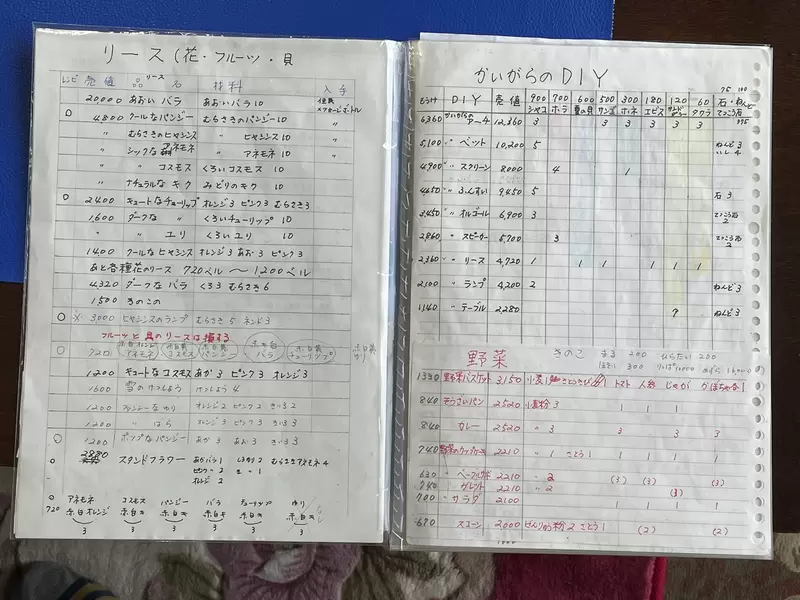 リース(花・フルーツ・貝
レシピ 売値 品 リース 名 材料 入手
20000 あおいバラ あおいバラ 10 住民 メッセージボトル
○ 4800 クールなパンジー むらさきのパンジー 10 〃
〃 むらさきのヒヤシンス 〃 ヒヤシンス 10 〃
〃 シックなアネモネ 〃 アネモネ 10 〃
〃 コスモス くろいコスモス 10
〃 ナチュラルなキク みどりのキク 10
○ 2400 キュートなチューリップ オレンジ3 ピンク3 むらさき3
1600 ダークな 〃 くろいチューリップ 10
〃 〃 ユリ くろいユリ 10
1400 クールなヒヤシンス オレンジ3 あお3 ピンク3
あと各種花のリース 720ベル 〜 1200ベル
4320 ダークなバラ くろ3 むらさき6
1500 きのこの
○ × 3000 ヒヤシンスのランプ むらさき5 ネンド3
フルーツと貝のリースは損する
○ 720 赤白オレンジ アネモネ 赤白黄 コスモス 赤白黄 パンジー 赤キ白 バラ 赤白黄 チューリップ 赤白黄 ゆり
1200 キュートなコスモス あか3 ピンク3 オレンジ3
1600 雪のけっしょう けっしょう4
1200 ファンシーなゆり オレンジ2 ピンク2 きい32
1200 〃 ばら オレンジ3 ピンク3 きい3
○ 1200 ポップなパンジー あか3 あお3 きい3
○ 2880 スタンドフラワー あかバラ1 しろゆり2 むらさきアネモネ4
ピンク〃2 き〃1
オレンジ2
○ アネモネ コスモス パンジー バラ チューリップ ゆり
720 赤白オレンジ 赤白キ 赤白キ 赤白キ 赤白キ 赤白キ
3 3 3 3 3 3
かいがらのDIY
75 100
もうけ DIY 売値 900 700 600 500 300 180 120 60 石・ねんど
シャコ ホラ 夏の貝 サンゴ ホネ エビス サンドダラー タカラ てっこう石
375
6360 かいがらのアーチ 12,360 3 3 3 3 3
5,100 〃 ベット 10,200 5 ねんど3 いし4
4,900 〃 スクリーン 8000 4 1
4450 〃 ふんすい 9,450 5 石3
3,450 〃 オルゴール 6,900 3 てっこう石2
2,860 〃 スピーカー 5,700 3 てっこう石2
2,360 〃 リース 4,720 1 1 1 1 1 1
2,100 〃 ランプ 4,200 2 ねんど3
1,140 〃 テーブル 2,280 7 ねんど3
野菜 きのこ まる 200 ひらたい 200
ほそい 300
1330 野菜バスケット 3150 小麦1 さとうきび1 トマト 人参 じゃが かぼちゃ各1
840 そうざいパン 2520 小麦粉3 1 1 1
840 カレー 2520 〃 3 3 3 3
740 野菜のカップケーキ 2210 〃 1 さとう1 1 1 1 1
630 〃 ベーグルサンド 2210 〃 2 (3) (3) (3)
740 〃 ガレット 2210 〃 2 (3)
700 〃 サラダ 2100 1 1 1 1
670 スコーン 2000 せんりゅう粉2 さとう1 (2) (2)